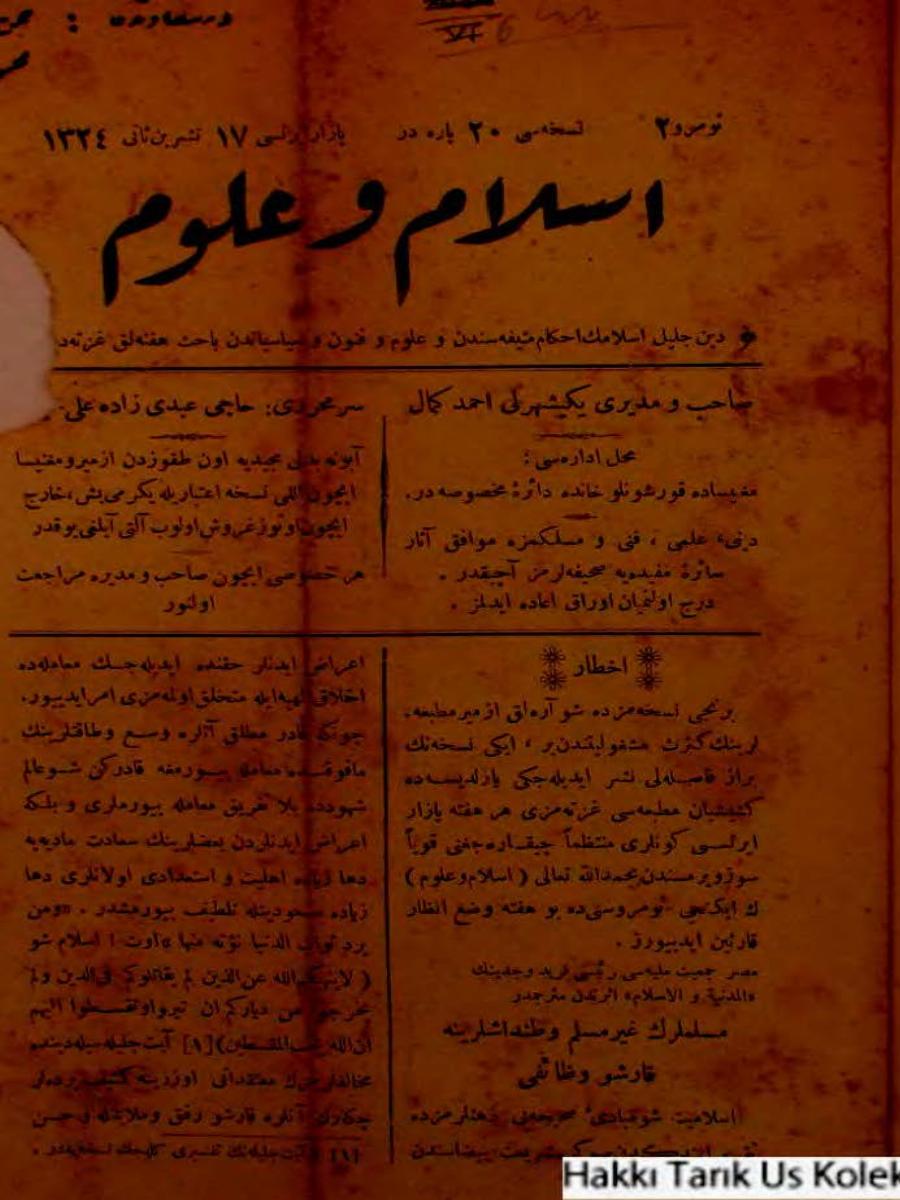 در سعادت :
VI 6
نومرو ٢ نسخه‌سی ٢٠ پاره در پازار ایرتسی ١٧ تشرین ثانی ١٣٢٤
اسلام و علوم
دین جلیل اسلامك احكام منیفه‌سندن و علوم و فنون و سیاسیاتدن باحث هفته‌لق غزته‌در
صاحب و مدیری یكیشهرلی احمد كمال
محل اداره‌سی :
مغنیساده قورشونلو خانده دائرهٔ مخصوصه در.
دینی، علمی ، فنی و مسلكمزه موافق آثار
سائرهٔ مفیده‌یه صحیفه‌لرمز آچیقدر .
درج اولنمیان اوراق اعاده ایدلمز .
سر محرری: حاجی عبدی زاده علی
آبونه بدلی مجیدیه اون طقوزدن ازمیر و مغنیسا
ایچون اللی نسخه اعتباریله یكرمی بش، خارج
ایچون اوتوز غروش اولوب آلتی آیلغی یوقدر
هر خصوصی ایچون صاحب و مدیره مراجعت
اولنور
اخطار
برنجی نسخه‌مزده شو آره‌لق ازمیر مطبعه‌
لرینك كثرت مشغولیتندن بر ، ایكی نسخه‌نك
براز فاصله‌لی نشر ایدیله‌جكی یازلدیسه‌ده
كشیشیان مطبعه‌سی غزته‌مزی هر هفته پازار
ایرتسی كونلری منتظماً چیقاره‌جغنی قویاً
سوز ویرمسندن بحمدالله تعالی (اسلام و علوم)
ك ایكنجی نومروسنی ده بو هفته وضع انظار
قارئین ایدییورز .
مصر جمعیت ملیه‌سی رئیسی فرید وجدینك
«المدنیة و الاسلام» اثرندن مترجمدر
مسلملرك غیر مسلم وطنداشلرینه
قارشو وظائفی
اسلامیت شو مبادیٔ صحیحه‌یی ذهنلرمزده
اعراض ایدنلر حقنده ایدیله‌جك معامله‌ده
اخلاق الهیه ایله متخلق اولمه‌مزی امر ایدییور.
چونكه قادر مطلق آنلره وسع و طاقتلرینك
مافوقنده معامله بیورمغه قادركن شو عالم
شهودده بلا تفریق معامله بیورملری و بلكه
اعراض ایدنلردن بعضلرینك سعادت مادیه‌یه
دها زیاده اهلیت و استعدادی اولانلری دها
زیاده مسعودیتله تلطف بیورمشدر . «ومن
یرد ثواب الدنیا نؤته منها» اوت ! اسلام شو
( لاینهاكم الله عن الذین لم یقاتلوكم فی الدین ولم
یخرجوكم من دیاركم ان تبروا وتقسطوا الیهم
ان الله یحب المقسطین) [١] آیت جلیله‌سیله دیننده
مخالفلرینك معتقداتی اوزرینه كثیف پرده‌لر
چكه‌رك آنلره قارشو رفق و ملایمتله و حسن
[١] آیت جلیله‌نك تفسیری كله‌جك نسخه‌ده‌در .
Hakkı Tarık Us Kolek